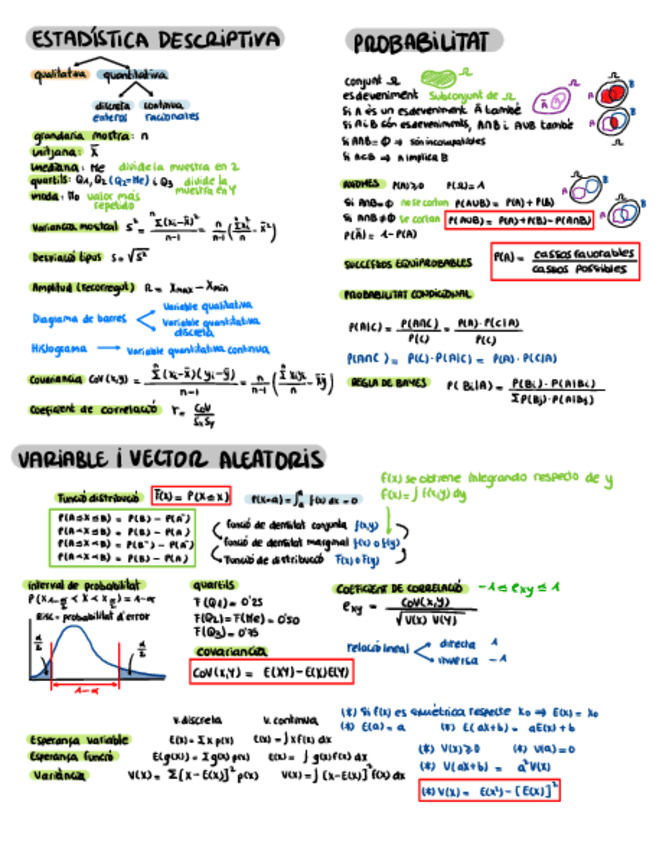 ESTADÍSTICA DESCRIPTIVA
qualitativa quantitativa
discreta continua
enteros racionales
grandaria mostra: n
mitjana: x̄
mediana: Me divide la muestra en 2
quartils: Q1, Q2 (Q2=Me) i Q3 divide la muestra en 4
moda: Mo valor más repetido
Variancia mostral s² = Σ(xi-x̄)² / n-1 = n/n-1 (Σxi²/n - x̄²)
Desviació tipus s = √s²
Amplitud (recorregut) R = Xmax - Xmin
Diagrama de barres Variable qualitativa
Variable quantitativa discreta
Histograma → Variable quantitativa continua
Covariancia Cov(x,y) = Σ(xi-x̄)(yi-ȳ) / n-1 = n/n-1 (Σxiyi/n - x̄ȳ)
Coeficient de correlació r = Cov / SxSy
PROBABILITAT
Conjunt Ω
esdeveniment Subconjunt de Ω
Si A és un esdeveniment Ā també
Si A i B són esdeveniments, A∩B i A∪B també
Si A∩B = Ø ⇒ són incompatibles
Si A⊂B ⇒ A implica B
P(A)≥0 P(Ω)=1
Si A∩B=Ø no se cortan P(A∪B) = P(A)+P(B)
Si A∩B≠Ø se cortan P(A∪B) = P(A)+P(B)-P(A∩B)
P(Ā) = 1-P(A)
SUCCESSOS EQUIPROBABLES P(A) = cassos favorables / cassos possibles
PROBABILITAT CONDICIONAL
P(A|C) = P(A∩C) / P(C) = P(A)·P(C|A) / P(C)
P(A∩C) = P(C)·P(A|C) = P(A)·P(C|A)
REGLA DE BAYES P(Bi|A) = P(Bi)·P(A|Bi) / ΣP(Bj)·P(A|Bj)
VARIABLE i VECTOR ALEATORIS
f(x) se obtiene integrando respecto de y
f(x) = ∫f(x,y) dy
Funció distribució F(x) = P(X≤x) P(X=a) = ∫ f(x) dx = 0
P(A≤X≤B) = P(B) - P(A⁻)
P(A<X≤B) = P(B) - P(A)
P(A≤X<B) = P(B⁻) - P(A⁻)
P(A<X<B) = P(B) - P(A)
funció de densitat conjunta f(x,y)
funció de densitat marginal f(x) o f(y)
Funció de distribució F(x) o F(y)
interval de probabilitat
risc = probabilitat d'error
α/2 α/2
1-α
quartils
F(Q1) = 0'25
F(Q2) = F(Me) = 0'50
F(Q3) = 0'75
covariancia
Cov(X,Y) = E(XY) - E(X)E(Y)
COEFICIENT DE CORRELACIÓ -1 ≤ ρxy ≤ 1
ρxy = Cov(X,Y) / √V(X) V(Y)
relació lineal directa 1
inversa -1
v. discreta v. continua
Esperança variable E(X) = Σx p(x) E(X) = ∫x f(x) dx
Esperança funció E(g(x)) = Σg(x) p(x) E(X) = ∫ g(x) f(x) dx
Variància V(X) = Σ[x - E(X)]² p(x) V(X) = ∫(x-E(X))² f(x) dx
(*) Si f(x) es simétrica respecte x₀ ⇒ E(X) = x₀
(*) E(a) = a (*) E(ax+b) = aE(x)+b
(*) V(X)≥0 (*) V(a)=0
(*) V(ax+b) = a²V(X)
(*) V(X) = E(X²) - [E(X)]²